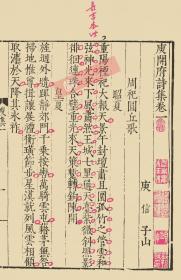 庾開府詩集卷一
庾信 子山
周祀圓丘歌
昭夏
重陽禋祀大報天景午封壇肅且圓孤竹之管雲和
弦神光未下風肅然王城七里通天臺紫微斜照影
徘徊連珠合璧重光來天策蹔轉鉤陳開
皇夏
旌迴外壝蹕靜郊門千乘按轡萬騎雲屯藉茅無咎
掃地惟尊揖讓展禮衡璜節步星漢就列風雲相顧
取法於天降其永祚